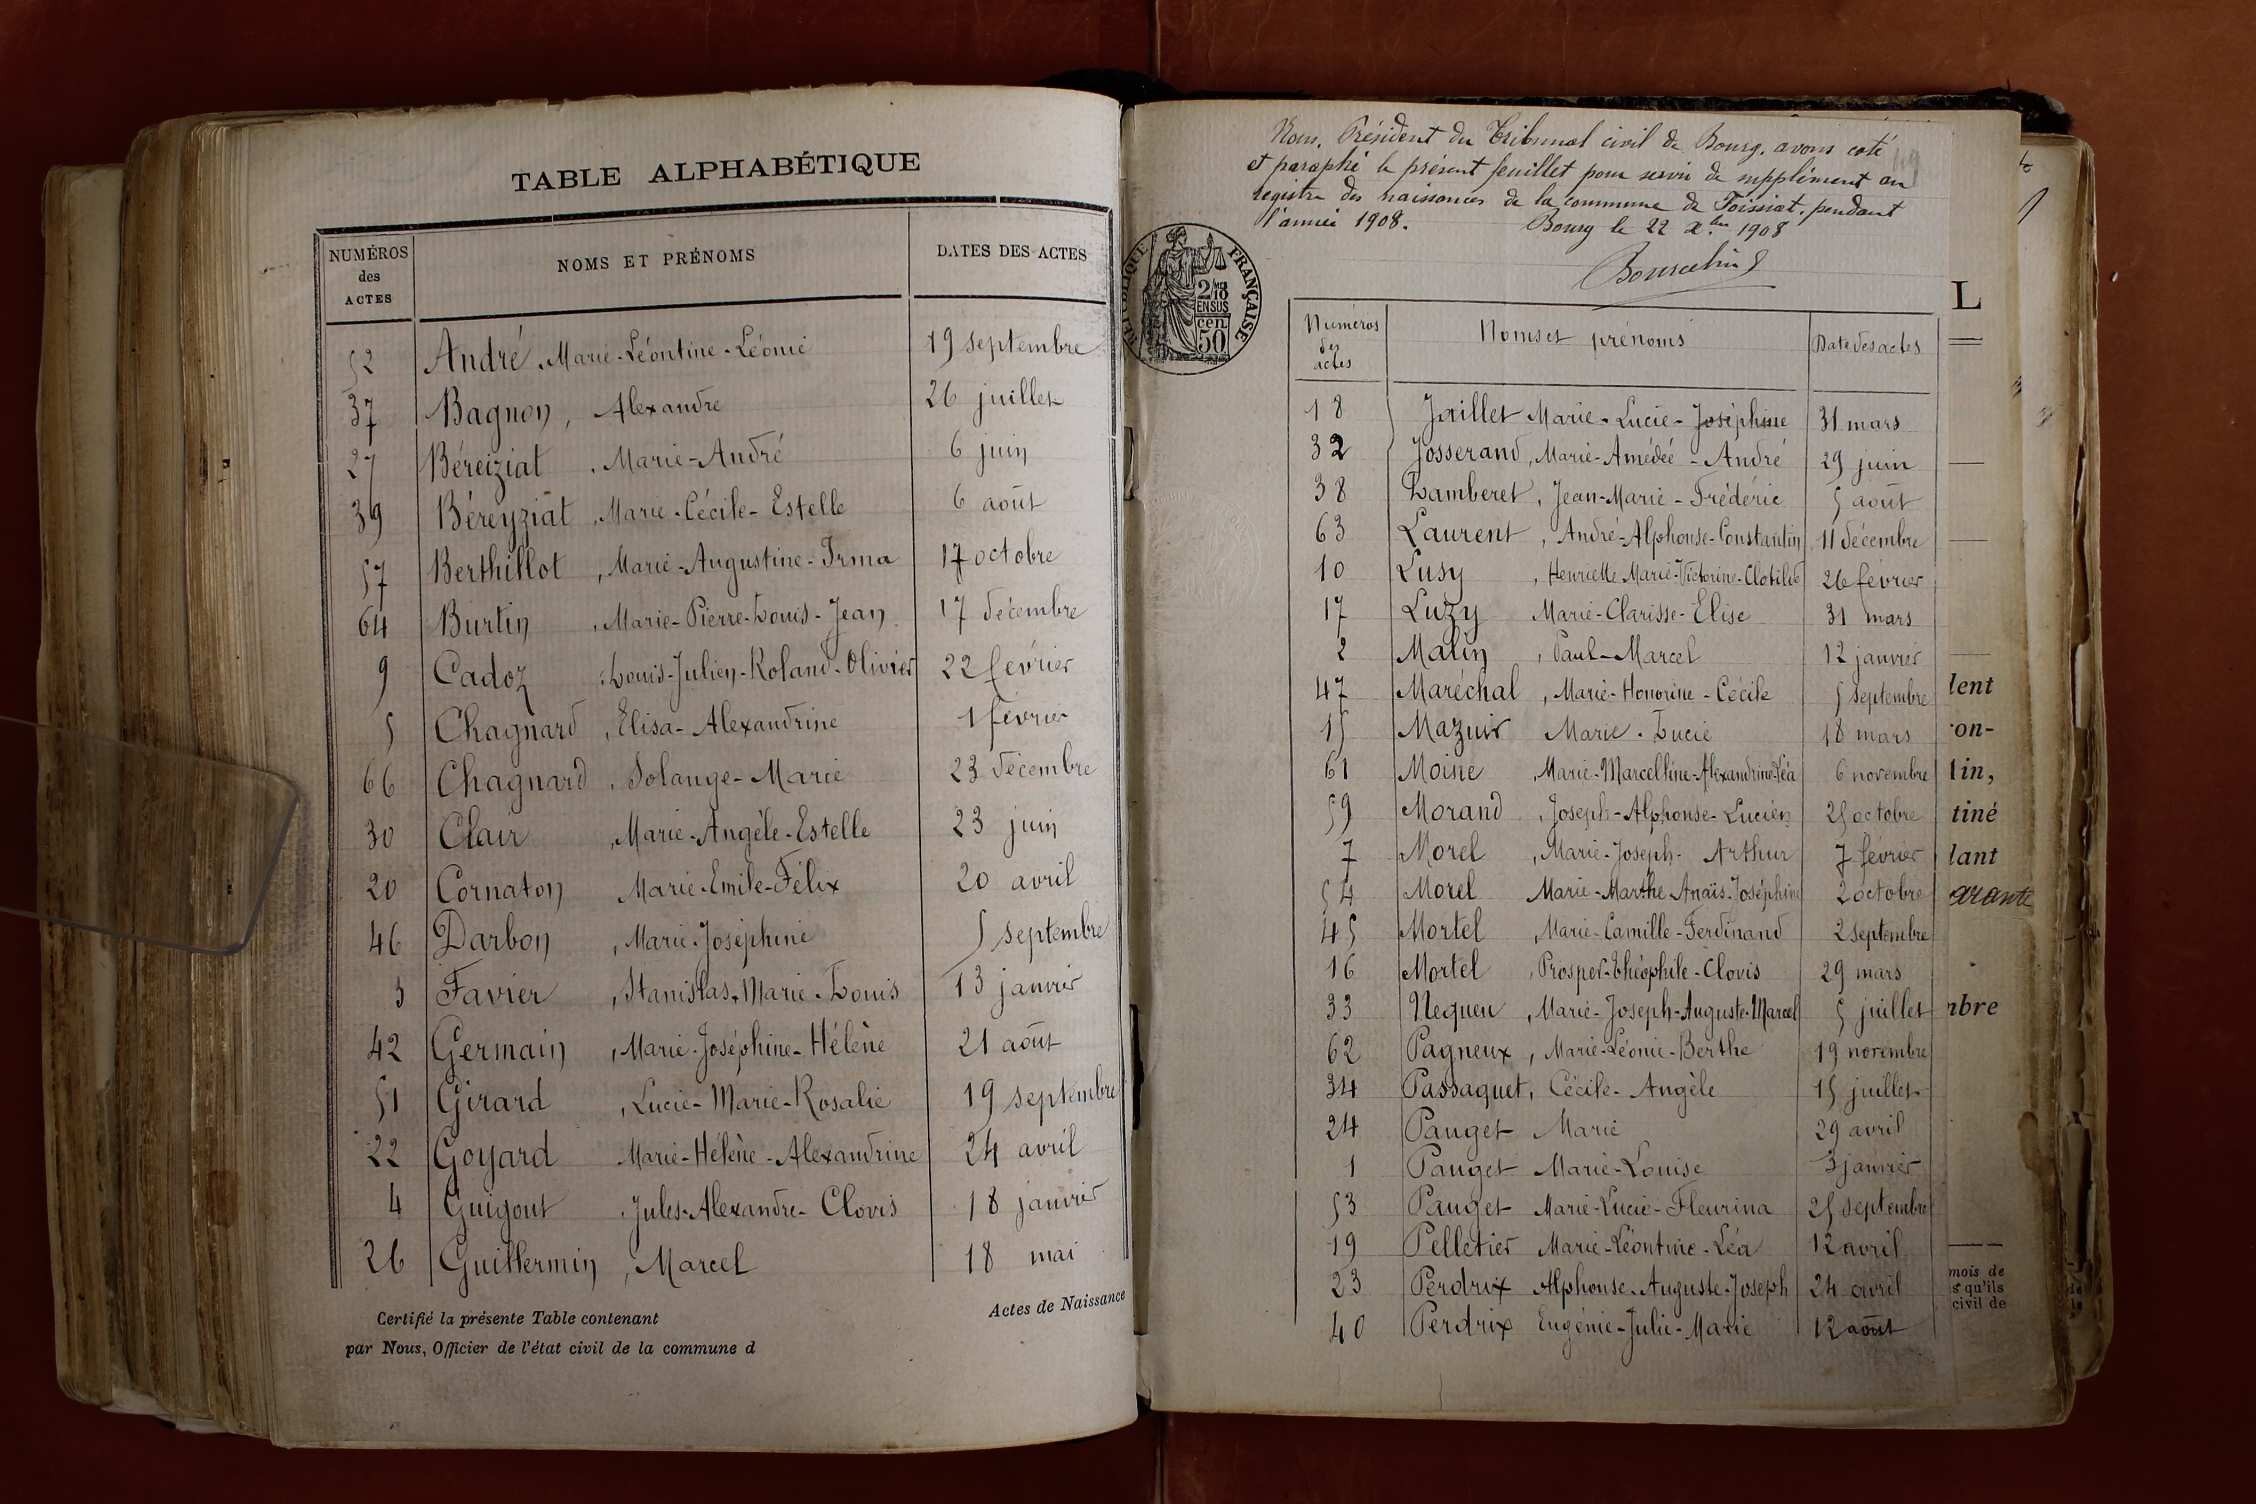 TABLE ALPHABÉTIQUE
NUMÉROS des ACTES NOMS ET PRÉNOMS DATES DES ACTES
52 André, Marie-Léontine-Léonie 19 septembre
37 Bagnon, Alexandre 26 juillet
27 Béreiziat, Marie-André 6 juin
39 Béreyziat, Marie-Cécile-Estelle 6 août
57 Berthillot, Marie-Augustine-Irma 17 octobre
64 Burtin, Marie-Pierre-Louis-Jean 17 décembre
9 Cadoz, Louis-Julien-Roland-Olivier 22 février
5 Chagnard, Elisa-Alexandrine 1 février
66 Chagnard, Solange-Marie 23 décembre
30 Clair, Marie-Angèle-Estelle 23 juin
20 Cornaton Marie-Emile-Félix 20 avril
46 Darbon, Marie-Joséphine 5 septembre
3 Favier, Stanislas-Marie-Louis 13 janvier
42 Germain, Marie-Joséphine-Hélène 21 août
51 Girard, Lucie-Marie-Rosalie 19 septembre
22 Goyard Marie-Hélène-Alexandrine 24 avril
4 Guigout, Jules-Alexandre-Clovis 18 janvier
26 Guillermin, Marcel 18 mai
Certifié la présente Table contenant Actes de Naissance
par Nous, Officier de l'état civil de la commune d
Nous, Président du Tribunal civil de Bourg, avons coté
et paraphé le présent feuillet pour servir de supplément au
registre des naissances de la commune de Foissiat, pendant
l'année 1908. Bourg le 22 Xbre 1908
RÉPUBLIQUE FRANÇAISE
2/10
EN SUS
cen
50
Numéros des actes Noms et prénoms Date des actes
18 Jaillet Marie-Lucie-Joséphine 31 mars
32 Josserand, Marie-Amédée-André 29 juin
38 Lamberet, Jean-Marie-Frédéric 5 août
63 Laurent, André-Alphonse-Constantin 11 décembre
10 Lusy, Henriette Marie-Victorine-Clotilde 26 février
17 Luzy Marie-Clarisse-Elise 31 mars
2 Malin, Paul-Marcel 12 janvier
47 Maréchal, Marie-Honorine-Cécile 5 septembre
15 Mazuir Marie-Lucie 18 mars
61 Moine, Marie-Marcelline-Alexandrine-Léa 6 novembre
59 Morand, Joseph-Alphonse-Lucien 25 octobre
7 Morel, Marie-Joseph-Arthur 7 février
54 Morel Marie-Marthe Anaïs-Joséphine 2 octobre
45 Mortel, Marie-Camille-Ferdinand 2 septembre
16 Mortel, Prosper-Théophile-Clovis 29 mars
33 Nequeu, Marie-Joseph-Auguste-Marcel 5 juillet
62 Pagneux, Marie-Léonie-Berthe 19 novembre
34 Passaquet, Cécile-Angèle 15 juillet
24 Pauget Marie 29 avril
1 Pauget Marie-Louise 3 janvier
53 Pauget Marie-Lucie-Fleurina 25 septembre
19 Pelletier Marie-Léontine-Léa 12 avril
23 Perdrix Alphonse-Auguste-Joseph 24 avril
40 Perdrix Eugénie-Julie-Marie 12 août
L
lent
on-
lin,
tiné
lant
arante
nbre
mois de
s qu'ils
civil de